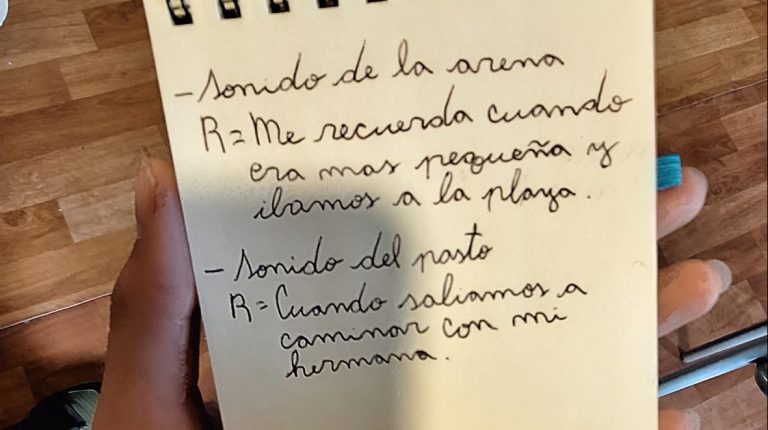 - Sonido de la arena
R= Me recuerda cuando
era mas pequeña y
ibamos a la playa.
- Sonido del pasto
R= Cuando saliamos a
caminar con mi
hermana.